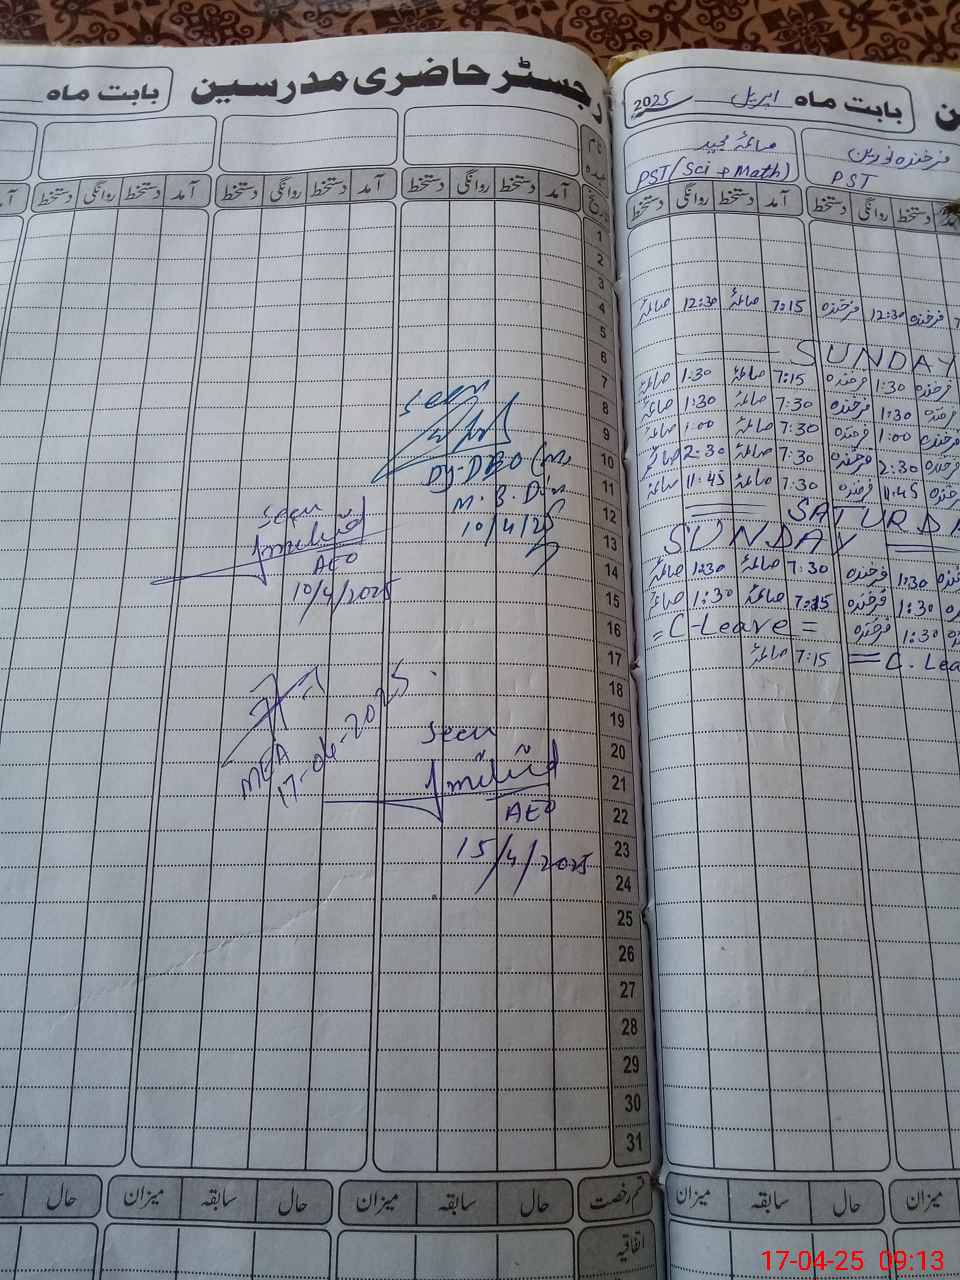 رجسٹر حاضری مدرسین
بابت ماہ
بابت ماہ اپریل 2025
نام
عہدہ
صائمہ مجید
PST (Sci + Math)
فرخندہ نورین
PST
تاریخ آمد دستخط روانگی دستخط آمد دستخط روانگی دستخط آمد دستخط روانگی دستخط
دستخط روانگی دستخط آمد دستخط روانگی دستخط
1
2
3
4
فرخندہ 12:30 فرخندہ 7:15 صائمہ 12:30 صائمہ
5
6
SUNDAY
7
فرخندہ 1:30 فرخندہ 7:15 صائمہ 1:30 صائمہ
8
فرخندہ 1:30 فرخندہ 7:30 صائمہ 1:30 صائمہ
9
فرخندہ 1:00 فرخندہ 7:30 صائمہ 1:00 صائمہ
10
فرخندہ 2:30 فرخندہ 7:30 صائمہ 2:30 صائمہ
11
فرخندہ 11:45 فرخندہ 7:30 صائمہ 11:45 صائمہ
12
SATURDA
13
SUNDAY
14
فرخندہ 1:30 فرخندہ 7:30 صائمہ 1:30 صائمہ
15
فرخندہ 1:30 فرخندہ 7:15 صائمہ 1:30 صائمہ
16
فرخندہ 1:30 فرخندہ = C-Leave =
17
= C. Lea 7:15 صائمہ
18
19
20
21
22
23
24
25
26
27
28
29
30
31
Seen
Dy. DEO
10/4/25
Seen
AEO
10/4/2025
MEA
17-04-2025
Seen
AEO
15/4/2025
قسم رخصت حال سابقہ میزان حال سابقہ میزان حال
میزان حال سابقہ میزان
اتفاقیہ
17-04-25 09:13